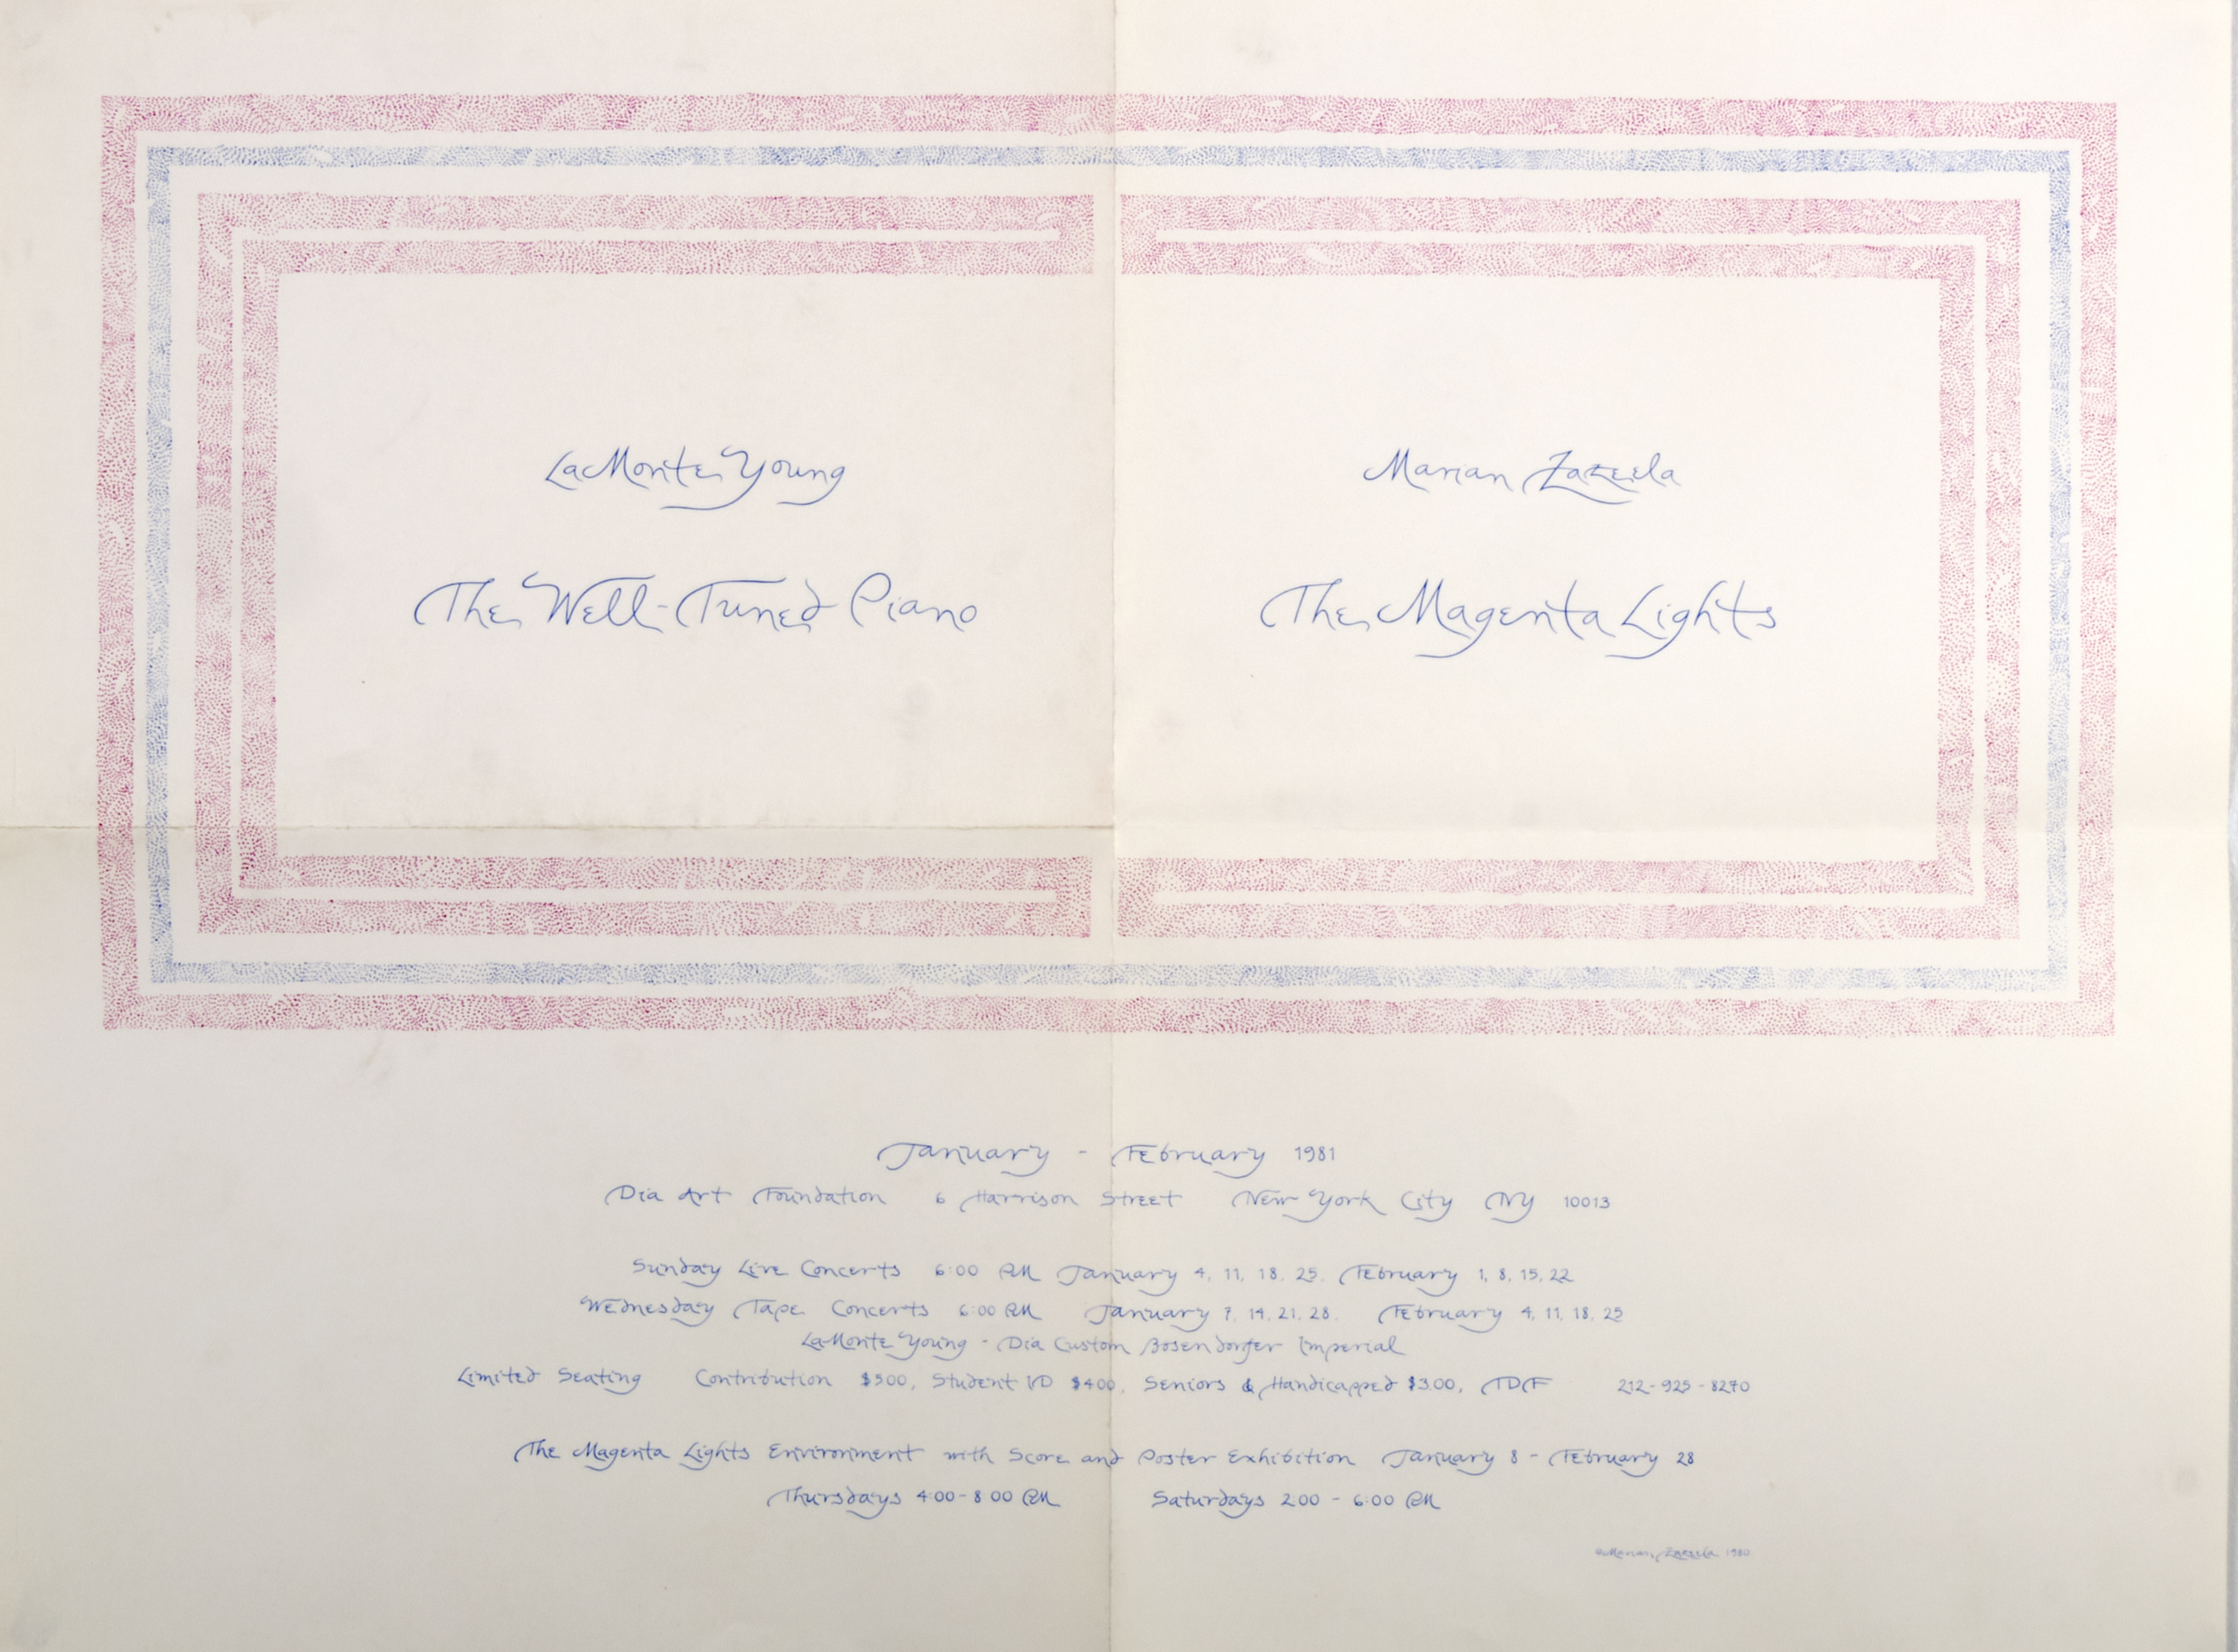 LaMonte Young
The Well-Tuned Piano
Marian Zazeela
The Magenta Lights
January - February 1981
Dia Art Foundation 6 Harrison Street New York City NY 10013
Sunday Live Concerts 6:00 PM January 4, 11, 18, 25, February 1, 8, 15, 22
Wednesday Tape Concerts 6:00 PM January 7, 14, 21, 28, February 4, 11, 18, 25
LaMonte Young - Dia Custom Bosendorfer Imperial
Limited Seating Contribution $5.00, Student I/D $4.00, Seniors & Handicapped $3.00, TDF 212-925-8270
The Magenta Lights Environment with Score and Poster Exhibition January 8 - February 28
Thursdays 4:00-8:00 PM Saturdays 2:00 - 6:00 PM
©Marian Zazeela 1980